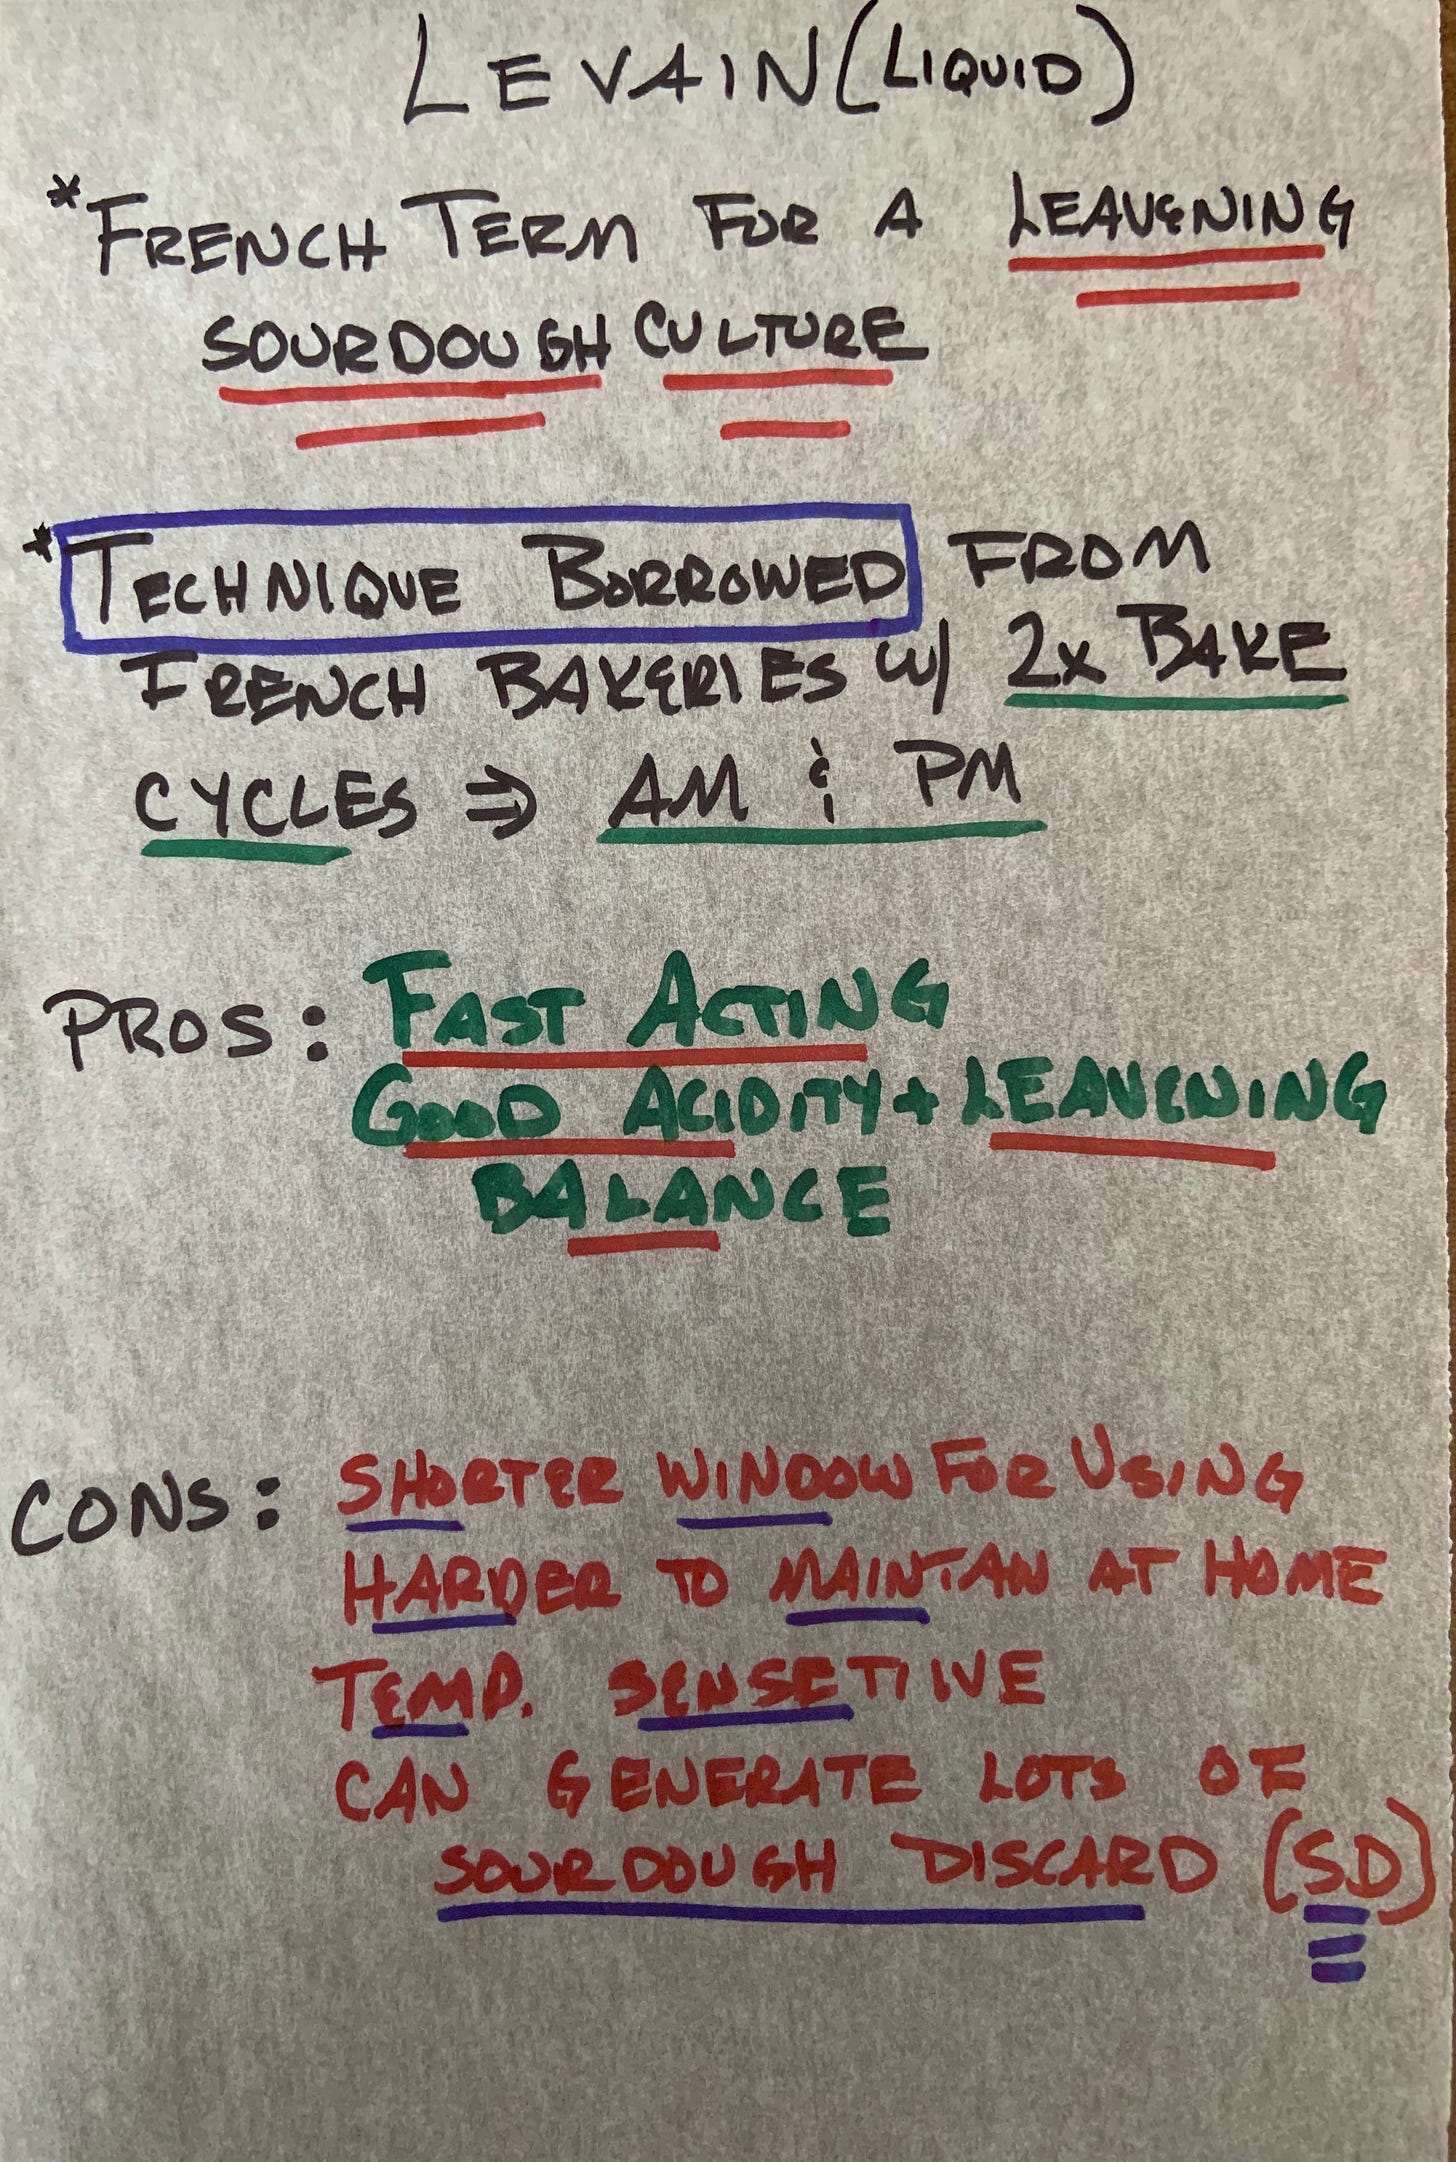 LEVAIN (LIQUID)
* FRENCH TERM FOR A LEAVENING
SOURDOUGH CULTURE
* TECHNIQUE BORROWED FROM
FRENCH BAKERIES W/ 2x BAKE
CYCLES ⇒ AM & PM
PROS: FAST ACTING
GOOD ACIDITY + LEAVENING
BALANCE
CONS: SHORTER WINDOW FOR USING
HARDER TO MAINTAN AT HOME
TEMP. SENSETIIVE
CAN GENERATE LOTS OF
SOURDOUGH DISCARD (SD)